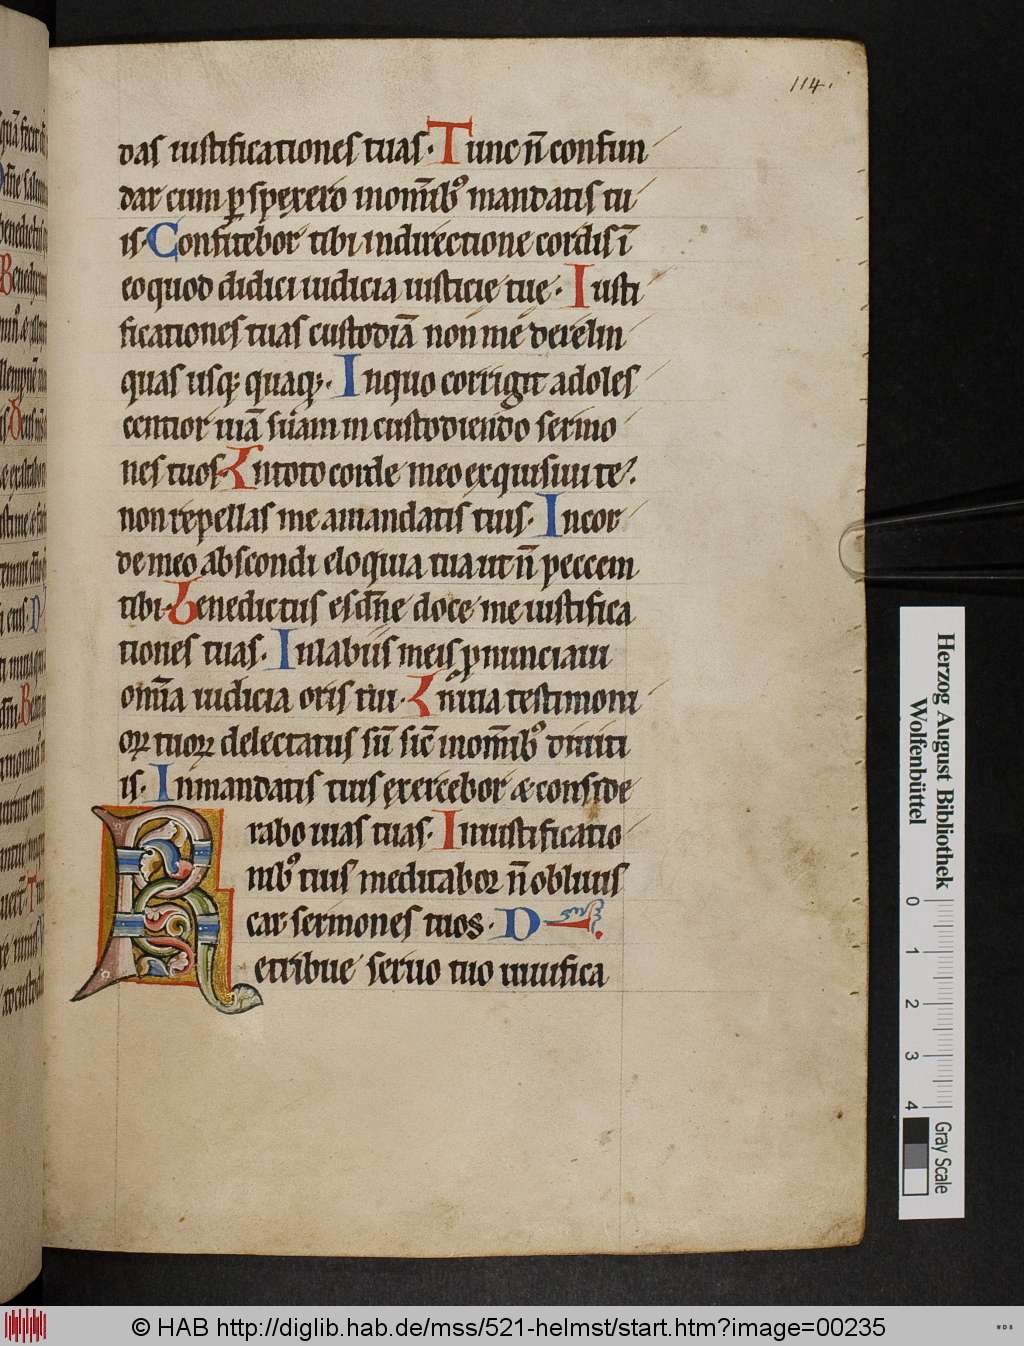 114.
das iustificationes tuas· Tunc n̄ confun
dar cum ꝑspexero inom̄ibꝰ mandatis tu
is· Confitebor tibi indirectione cordis ī
eoquod didici iudicia iusticie tue· Iusti
ficationes tuas custodiā non me derelin
quas usq; quaq;· Inquo corrigit adoles
centior uiā suam in custodiendo sermo
nes tuos· Intoto corde meo exquisiui te·
non repellas me amandatis tuis· Incor
de meo abscondi eloquia tua ut n̄ peccem
tibi· Benedictus es dn̄e doce me iustifica
tiones tuas· Inlabiis meis ꝓnunciaui
om̄ia iudicia oris tui· Inuia testimoni
oꝝ tuoꝝ delectatus sū sic̄ inom̄ibꝰ diuiti
is· Inmandatis tuis exercebor & conside
rabo uias tuas· Iniustificatio
nibꝰ tuis meditabor n̄ obliuis
car sermones tuos· D
Retribue seruo tuo uiuifica
Herzog August Bibliothek
Wolfenbüttel
0 1 2 3 4
Gray Scale
© HAB http://diglib.hab.de/mss/521-helmst/start.htm?image=00235